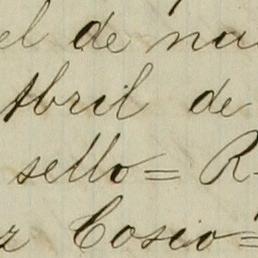 el de nu
Abril de
sello = R
z Cosio =